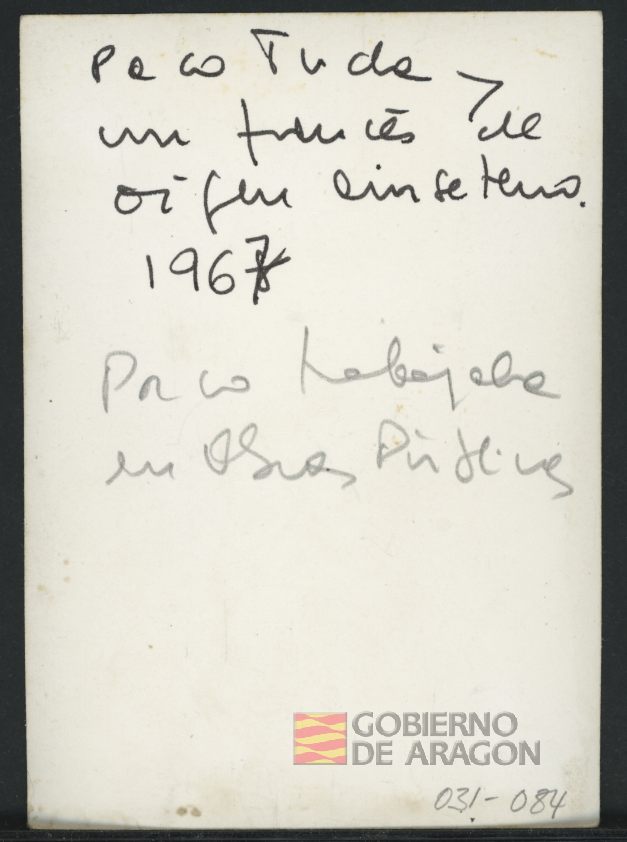 Paco Tuda y
un francés de
origen ainseteno.
1967
Paco trabajaba
en Obras Públicas
GOBIERNO
DE ARAGON
031-084